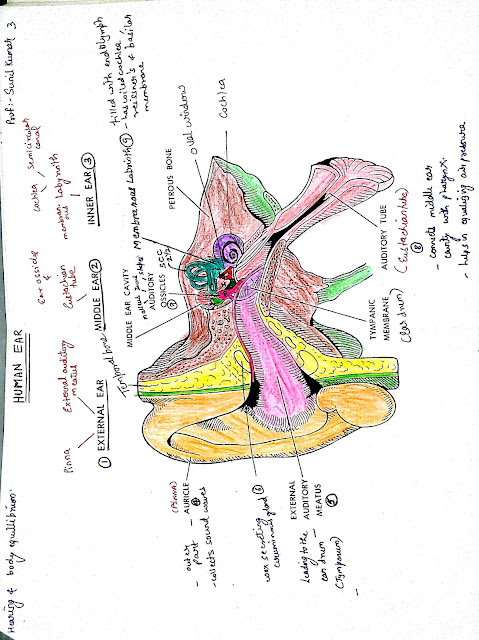 Hearing & body equilibrium:
Prof:- Sunil Kumar 3
HUMAN EAR
Pinna
External auditory
meatus
Ear ossicle
&
Eustachian
tube
cochlea
semicircular
canal
membran labyrinth
① EXTERNAL EAR
MIDDLE EAR ②
INNER EAR ③
Temporal bone
MIDDLE EAR CAVITY
AUDITORY
OSSICLES
SCC
Membranous labrinth ⑨
filled with endolymph
- has coiled cochlea
reissner's & basilar
membrane
PETROUS BONE
oval windows
Cochlea
(PINNA)
AURICLE ④
- outer
part
- collects sound waves
wax secreting
ceruminous gland ⑥
EXTERNAL
AUDITORY
MEATUS ⑤
leading to the
ear drum
(Tympanum)
TYMPANIC
MEMBRANE
(Ear drum)
AUDITORY TUBE
(Eustachian tube)
⑧
- connects middle ear
cavity with pharynx.
- helps in equalizing air pressure